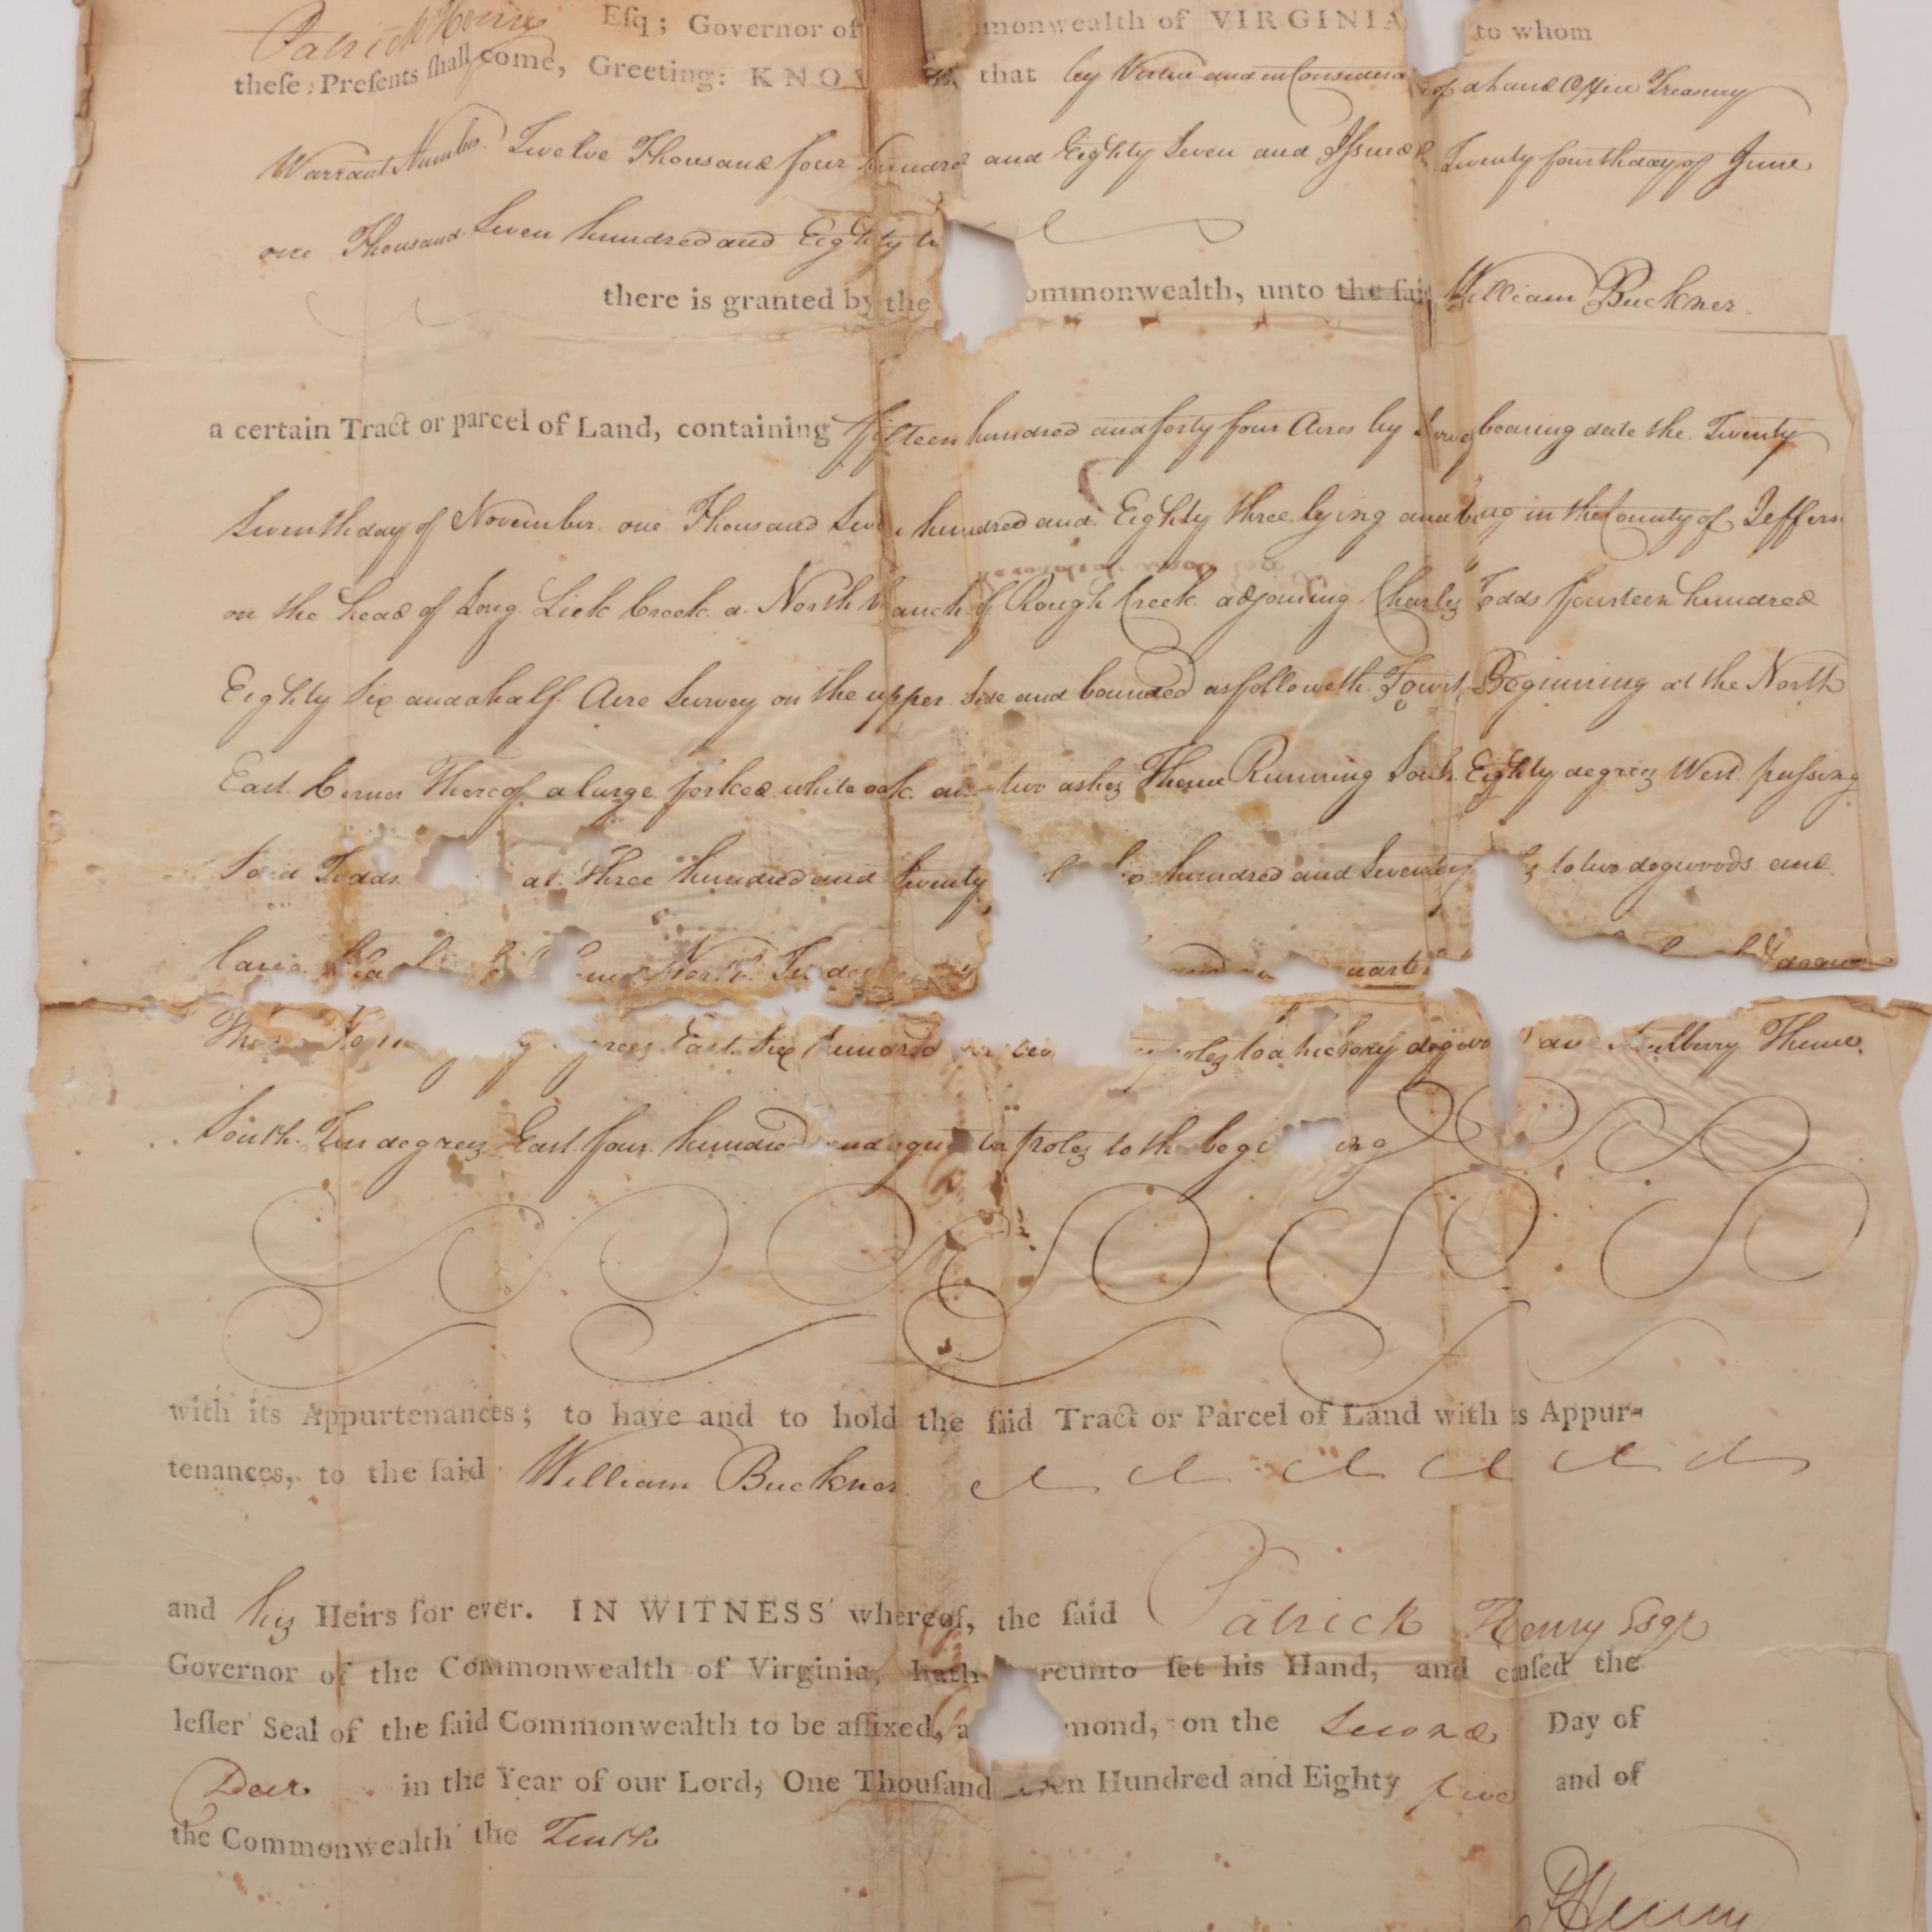 Patrick Henry Esq; Governor of monwealth of VIRGINIA to whom
theſe Preſents ſhall come, Greeting: KNO that by Virtue and in Considera of a Land Office Treasury
Warrant Number Twelve Thousand four hundred and Eighty Seven and Issued Twenty fourth day of June
one Thousand Seven hundred and Eighty
there is granted by the ommonwealth, unto the ſaid William Buckner
a certain Tract or parcel of Land, containing fifteen hundred and forty four Acres by bearing date the Twenty
Seventh day of November one Thousand Seve n hundred and Eighty three lying and being in the County of Jefferson
on the head of Long Lick Creek a North branch of Rough Creek adjoining Charles Todds fourteen hundred
Eighty Six and a half Acre Survey on the upper Side and bounded as followeth Towit Beginning at the North
East Corner Thereof a large forked white oak and two ashes Thence Running South Eighty degrees West passing
Said Todds at Three hundred and Twenty hundred and Seventy to two dogwoods and
North Ten
East Six hundred poles to a hickory dogwood and Mulberry Thence
South Ten degrees East four hundred poles to the begi ing
with its Appurtenances; to have and to hold the ſaid Tract or Parcel of Land with s Appur-
tenances, to the ſaid William Buckner
and his Heirs for ever. IN WITNESS whereof, the ſaid Patrick Henry Esqr
Governor of the Commonwealth of Virginia, hath reunto ſet his Hand, and cauſed the
leſſer Seal of the ſaid Commonwealth to be affixed, a mond, on the Second Day of
Decr in the Year of our Lord, One Thouſand en Hundred and Eighty five and of
the Commonwealth the Tenth
P Henry